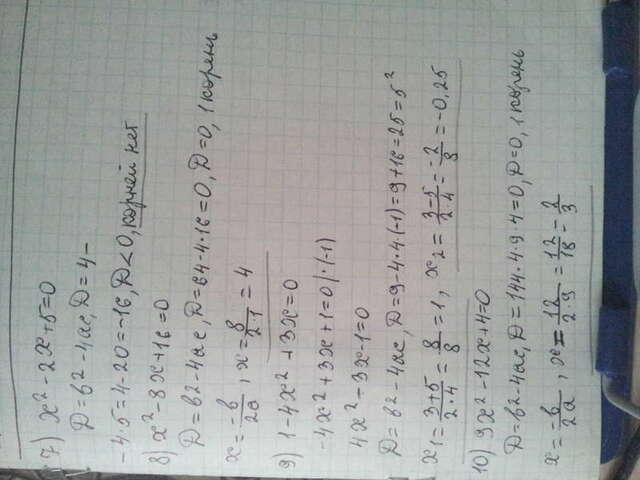 7) x² - 2x + 5 = 0
D = b² - 4ac, D = 4 -
- 4·5 = 4 - 20 = -16, D < 0, корней нет
8) x² - 8x + 16 = 0
D = b² - 4ac, D = 64 - 4·16 = 0, D = 0, 1 корень
x = -b/2a, x = 8/2·1 = 4
9) 1 - 4x² + 3x = 0
-4x² + 3x + 1 = 0 |·(-1)
4x² - 3x - 1 = 0
D = b² - 4ac, D = 9 - 4·4·(-1) = 9 + 16 = 25 = 5²
x₁ = 3+5/2·4 = 8/8 = 1, x₂ = 3-5/2·4 = -2/8 = -0,25
10) 9x² - 12x + 4 = 0
D = b² - 4ac, D = 144·4·9·4 = 0, D = 0, 1 корень
x = -b/2a, x = 12/2·9 = 12/18 = 2/3